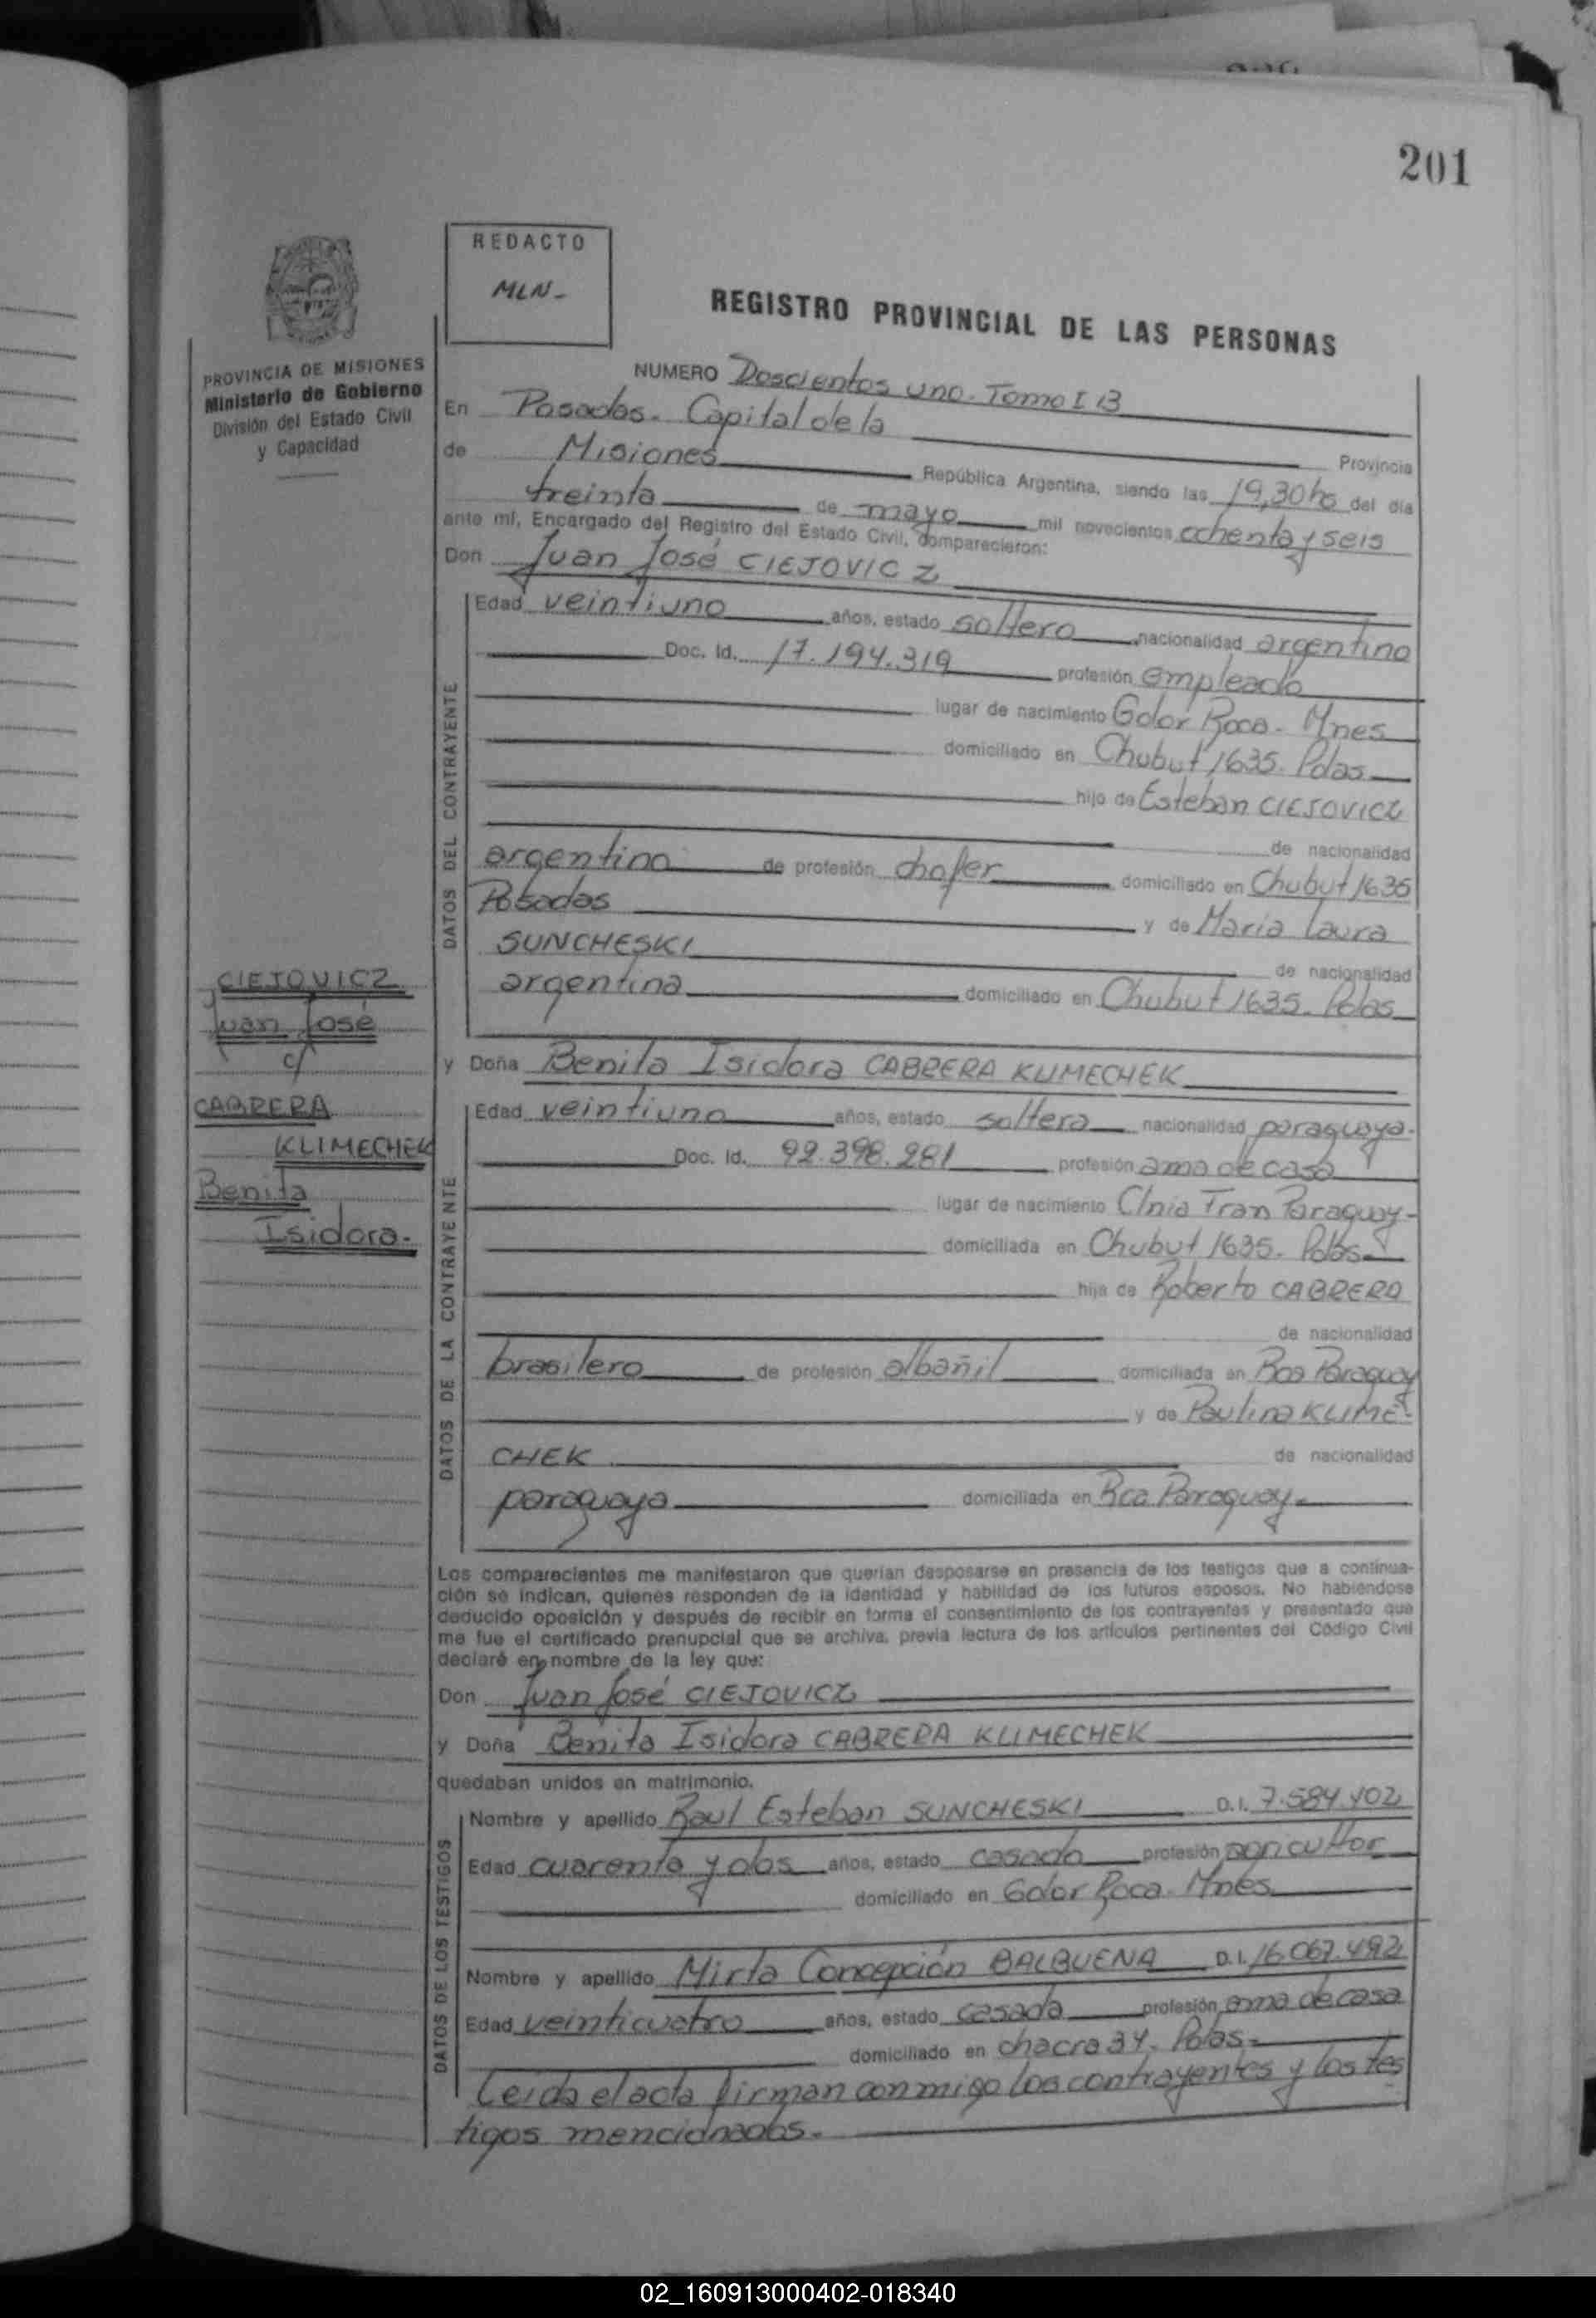 201
REDACTO
MLN-
REGISTRO PROVINCIAL DE LAS PERSONAS
PROVINCIA DE MISIONES
Ministerio de Gobierno
División del Estado Civil
y Capacidad
NUMERO Doscientos uno. Tomo I B
En Posadas. Capital de la
Provincia
de Misiones República Argentina, siendo las 19,30 hs del día
treinta de mayo mil novecientos ochenta y seis
ante mí, Encargado del Registro del Estado Civil, comparecieron:
Don Juan José CIEJOVICZ
DATOS DEL CONTRAYENTE
Edad veintiuno años, estado soltero nacionalidad argentino
Doc. Id. 17.194.319 profesión empleado
lugar de nacimiento Gdor Roca. Mnes
domiciliado en Chubut 1635. Pdas
hijo de Esteban CIEJOVICZ
de nacionalidad
argentino de profesión chofer domiciliado en Chubut 1635
Posadas y de Maria Laura
SUNCHESKI de nacionalidad
argentina domiciliado en Chubut 1635. Pdas
CIEJOVICZ
Juan José
c/
CABRERA
KLIMECHEK
Benita
Isidora.
y Doña Benita Isidora CABRERA KLIMECHEK
DATOS DE LA CONTRAYENTE
Edad veintiuno años, estado soltera nacionalidad paraguaya.
Doc. Id. 92.398.281 profesión ama de casa
lugar de nacimiento Clnia Fram Paraguay-
domiciliada en Chubut 1635. Pdas
hija de Roberto CABRERA
de nacionalidad
brasilero de profesión albañil domiciliada en Rca Paraguay
y de Paulina KLIME-
CHEK de nacionalidad
paraguaya domiciliada en Rca Paraguay
Los comparecientes me manifestaron que querían desposarse en presencia de los testigos que a continua-
ción se indican, quienes responden de la identidad y habilidad de los futuros esposos. No habiéndose
deducido oposición y después de recibir en forma el consentimiento de los contrayentes y presentado que
me fue el certificado prenupcial que se archiva, previa lectura de los artículos pertinentes del Código Civil
declaré en nombre de la ley que:
Don Juan José CIEJOVICZ
y Doña Benita Isidora CABRERA KLIMECHEK
quedaban unidos en matrimonio.
DATOS DE LOS TESTIGOS
Nombre y apellido Raul Esteban SUNCHESKI D.I. 7.584.402
Edad cuarenta y dos años, estado casado profesión agricultor
domiciliado en Gdor Roca. Mnes
Nombre y apellido Mirta Concepción BALBUENA D.I. 16.067.492
Edad veinticuatro años, estado casada profesión ama de casa
domiciliado en chacra 34. Pdas.
Leida el acta firman conmigo los contrayentes y los tes
tigos mencionados.
02_160913000402-018340